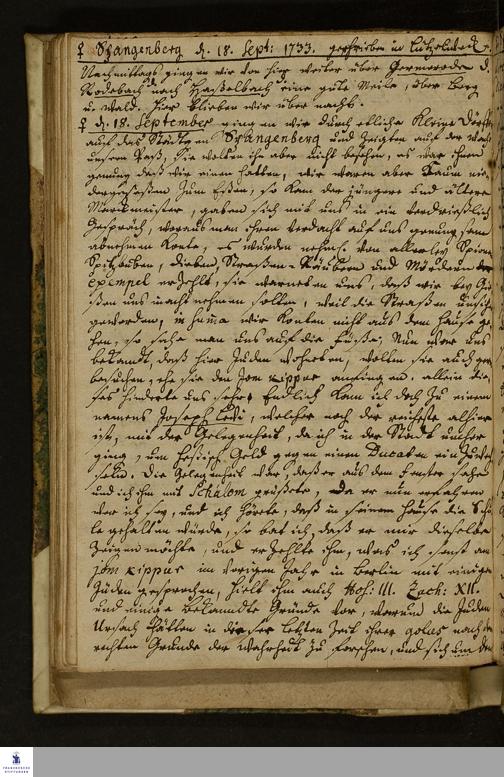 ♀ Spangenberg d. 18. Sept: 1733. geschrieben in Lützelwed
Nachmittags gingen wir von hier weiter über Germerode u.
Rodebach nach Hasselbach eine gute Meile, über Berg
u. Wald. Hier blieben wir über nacht.
♀ d. 18. September gingen wir durch etliche kleine Dörfer
auf das Städtgen Spangenberg und zeigten auf der Wach
unsern Paß, sie wolten ihn aber nicht besehen, es war ihnen
genung daß wir einen hatten, wir waren aber kaum nie-
dergesessen zum Eßen, so kam der jüngere und ältere
Marckmeister, gaben sich mit uns in ein verdrießlich
Gespräch, woraus man ihren verdacht auf uns genungsam
abnehmen konte, es wurden von allerley Spionen
Spitzbuben, Dieben, Straßen-Räubern und Mördern
exempel erzehlt, sie warneten uns, daß wir bey
uns in acht nehmen solten, weil die Straßen unsich
geworden, in summa wir konten nicht aus dem Hause ge-
hen, so sahe man uns auf die Füße. Nun war uns
bekandt, daß hier Juden wohneten, wolten sie auch gern
besuchen, ehe sie den Jom Kippur anfingen. allein die-
ses hinderte uns sehr. Endlich kam ich doch zu einem
namens Joseph Levi, welcher noch der reicheste alhier
ist, mit der Gelegenheit, da ich in der Stadt umher
ging, um Hessisch Geld gegen einen Ducaten einzuwech-
seln. Die Gelegenheit war, daß er aus dem Fenster sahe
und ich ihn mit Schalom grüssete, Da er nun erfahren
wer ich sey, und ich hörete, daß in seinem Hause die Schu-
le gehalten würde, so bat ich, daß er mir dieselbe
zeigen möchte, und erzehlte ihm, was ich sonst am
jom kippur im vorigen Jahr in Berlin mit einigen
Juden gesprochen, hielt ihm auch Hos: III. Zach: XII.
und einige bekandte Gründe vor, warum die Juden
Ursach hätten in dieser letzten Zeit ihres golus nach dem
rechten Grunde der Wahrheit zu forschen, und sich um den
FRANCKESCHE
STIFTUNGEN